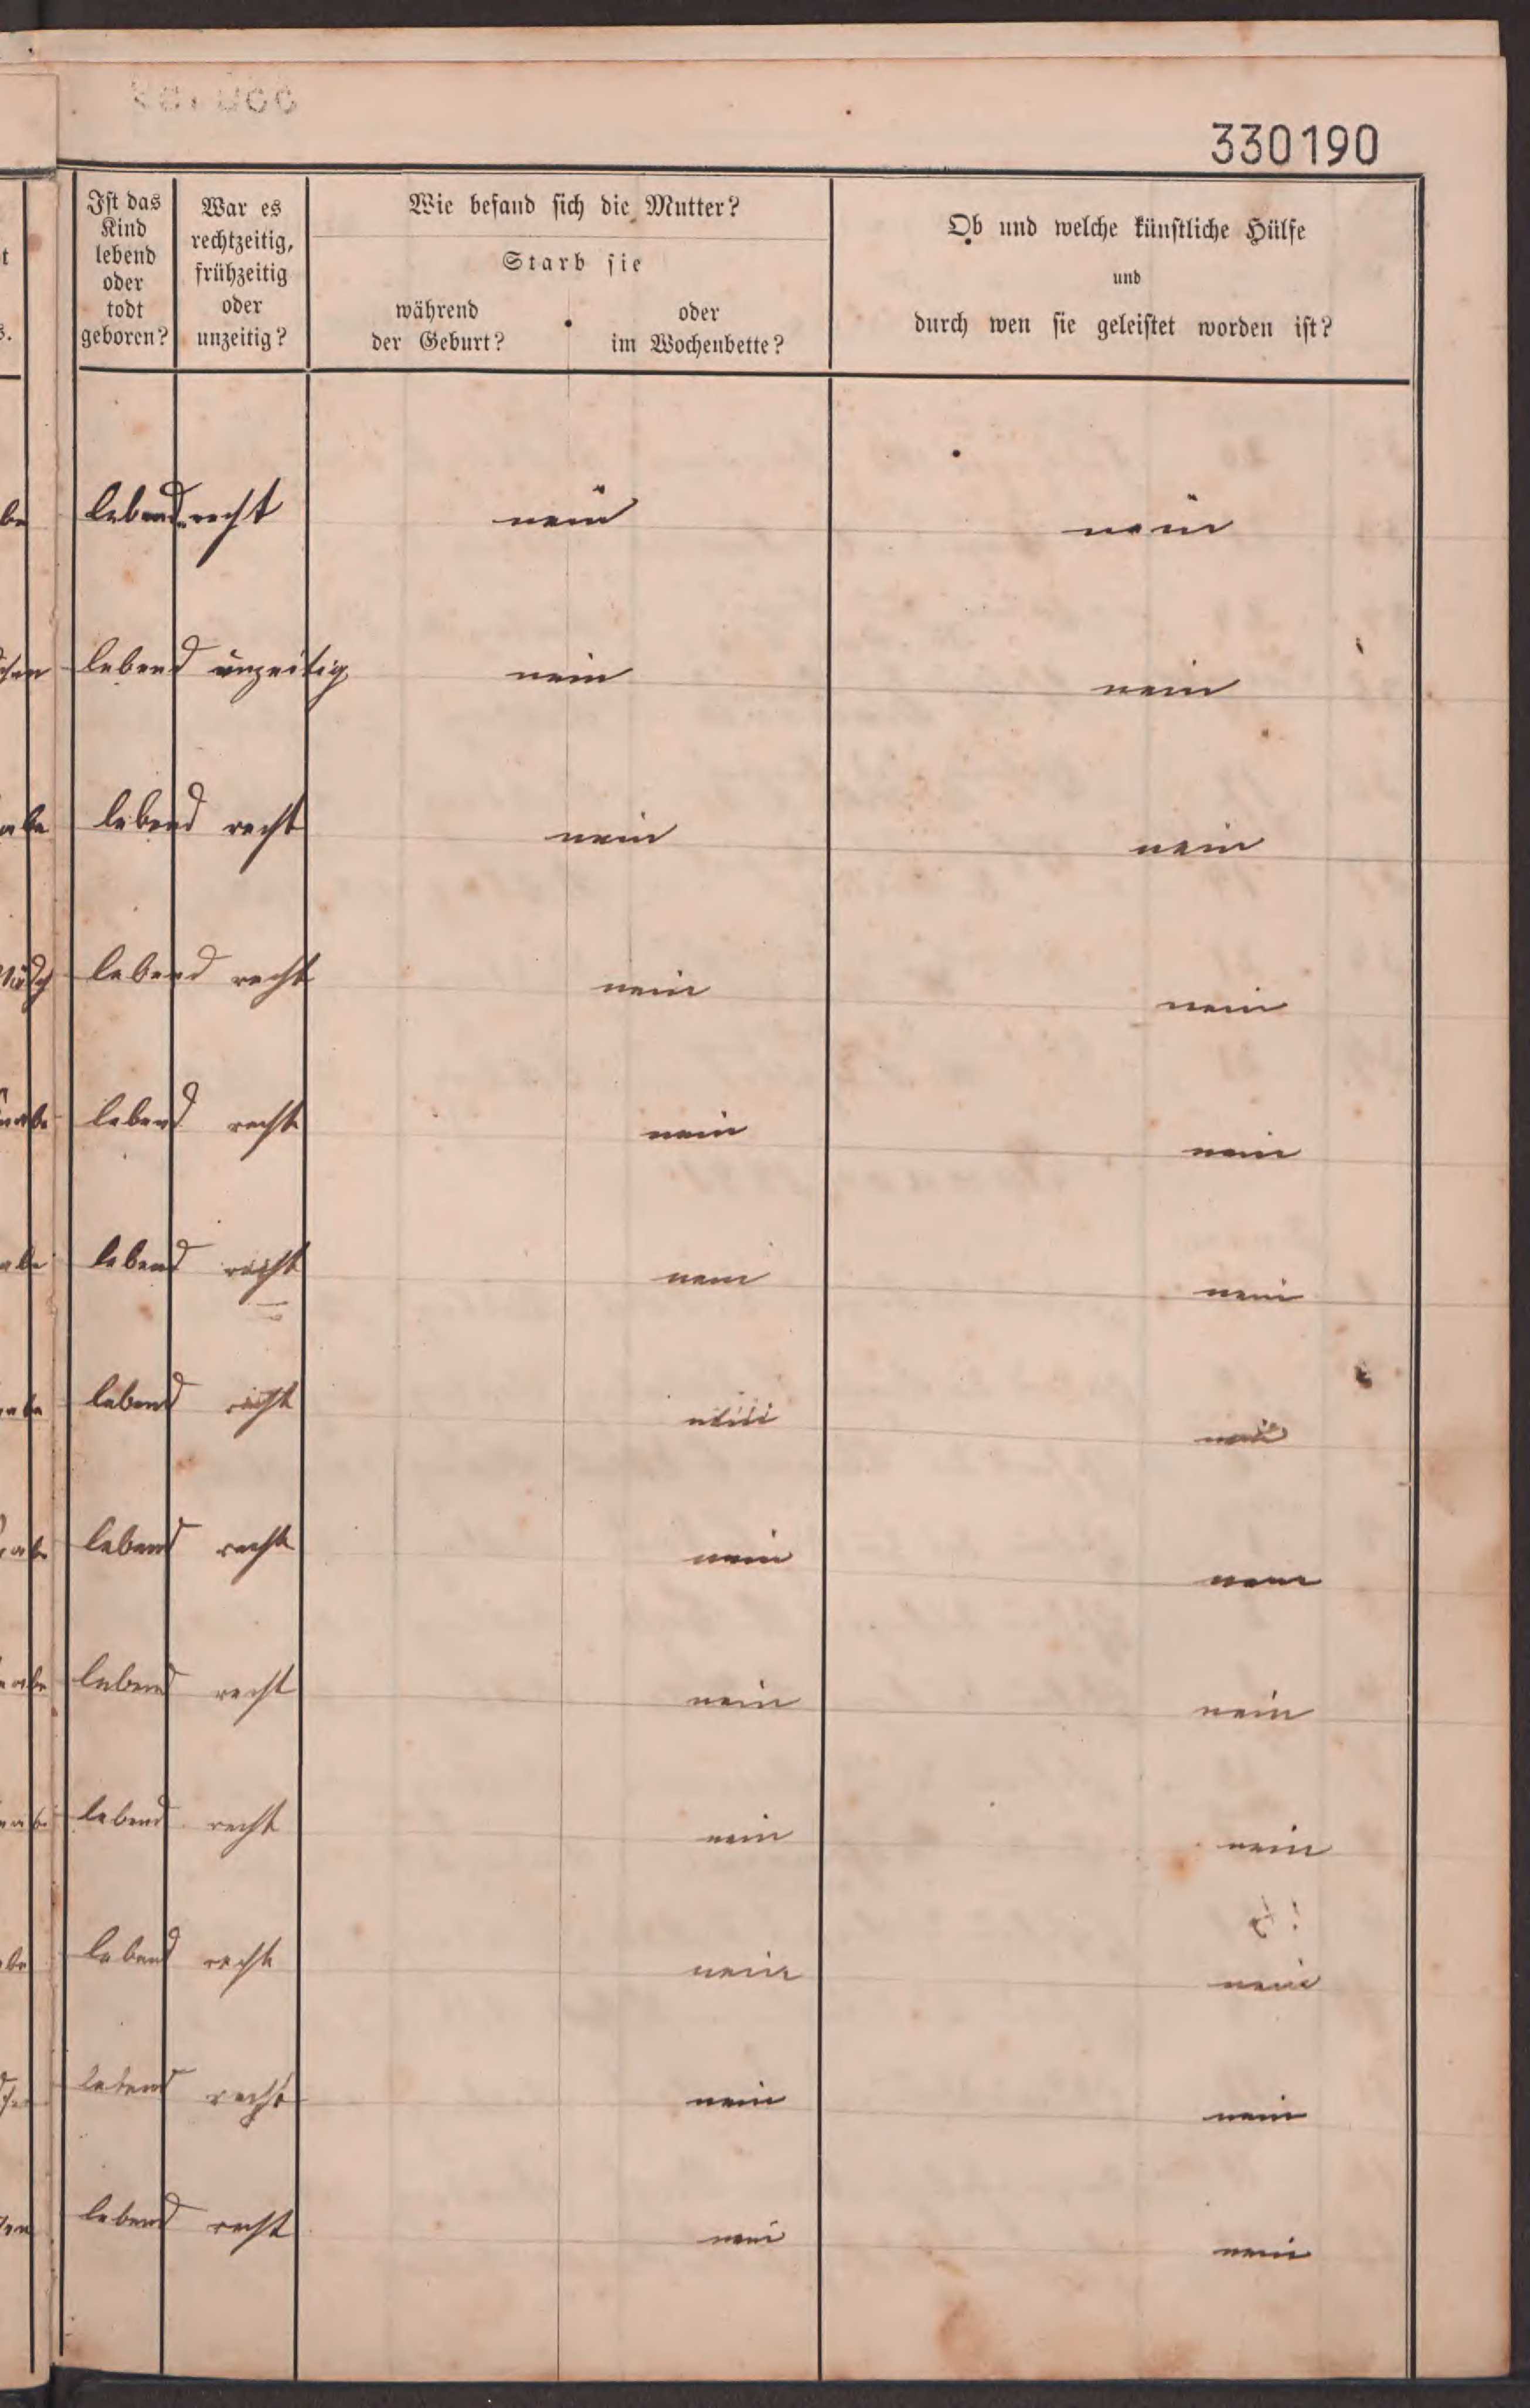 330190
Ist das Kind lebend oder todt geboren?
War es rechtzeitig, frühzeitig oder unzeitig?
Wie befand sich die Mutter?
Starb sie
während der Geburt?
oder im Wochenbette?
Ob und welche künstliche Hülfe
und
durch wen sie geleistet worden ist?
lebend recht nein nein
lebend unzeitig nein nein
lebend recht nein nein
lebend recht nein nein
lebend recht nein nein
lebend recht nein nein
lebend recht nein nein
lebend recht nein nein
lebend recht nein nein
lebend recht nein nein
lebend recht nein nein
lebend recht nein nein
lebend recht nein nein